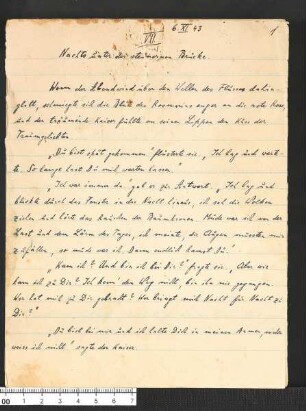 VII
6 XI 43
1
Nachts unter der steinernen Brücke.
Wenn der Abendwind über den Wellen des Flusses dahin
glitt, schmiegte sich die Blüte des Rosmarins enger an die rote Rose,
und der träumende Kaiser fühlte an seinen Lippen den Kuss der
Traumgeliebten.
„Du bist spät gekommen" flüsterte sie. „Ich lag und warte-
te. So lange hast Du mich warten lassen.
„Ich war immer da" gab er zur Antwort. „Ich lag und
blickte durch das Fenster in die Nacht hinaus, ich sah die Wolken
ziehen und hörte das Rauschen der Baumkronen. Müde war ich von der
Last und dem Lärm des Tages, ich meinte, die Augen müssten mir
zufallen, so müde war ich. Dann endlich kamst Du."
„Kam ich? Und bin ich bei Dir?" fragte sie. „Aber wie
kam ich zu Dir? Ich kenn' den Weg nicht, bin ihn nie gegangen.
Wer hat mich zu Dir gebracht? Wer bringt mich Nacht für Nacht zu
Dir?"
„Du bist bei mir und ich halte Dich in meinen Armen, mehr
weiss ich nicht" sagte der Kaiser.
00 1 2 3 4 5 6 7